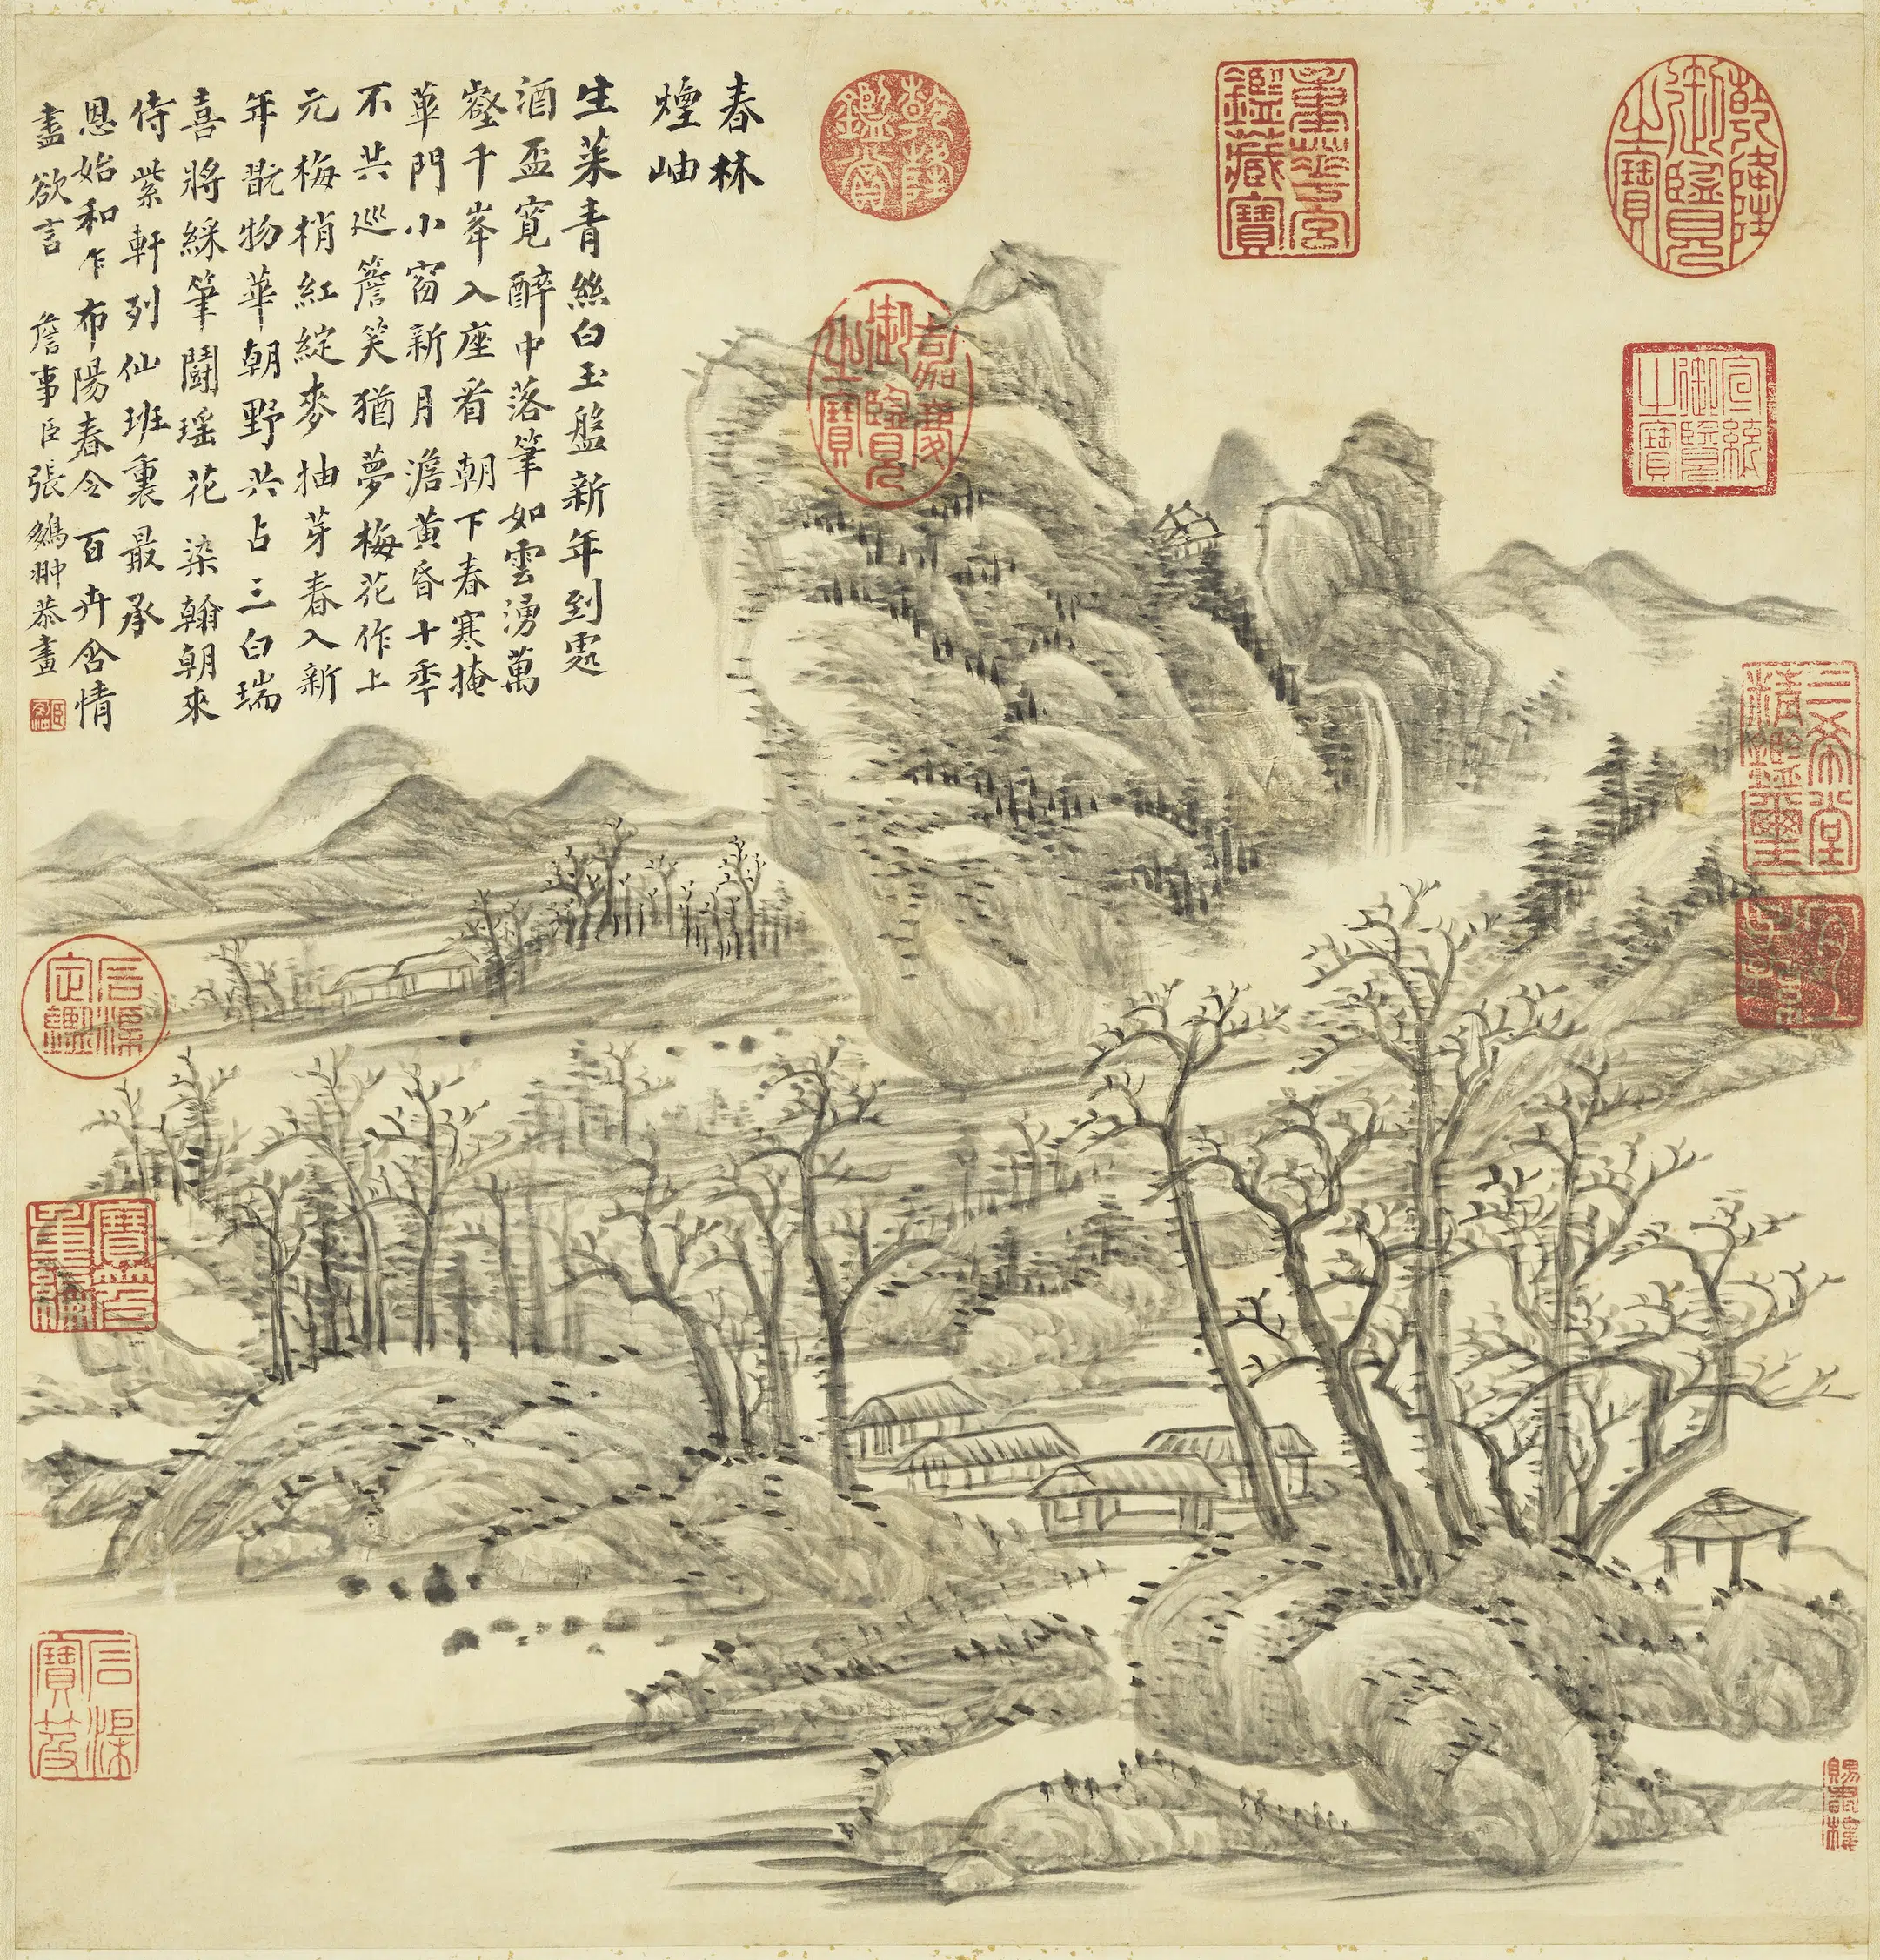 春林
煙岫
生菜青絲白玉盤新年到處
酒盃寬醉中落筆如雲湧萬
壑千峯入座看朝下春寒掩
華門小窗新月澹黃昏十年
不共巡簷笑猶夢梅花作上
元梅梢紅綻麥抽芽春入新
年翫物華朝野共占三白瑞
喜將綵筆鬪瑤花染翰朝來
侍紫軒列仙班裏最承
恩始和乍布陽春令百卉含情
盡欲言 詹事臣張鵬翀恭畫
乾隆御覽之寶
重華宮鑑藏寶
乾隆鑑賞
嘉慶御覽之寶
宣統御覽之寶
三希堂精鑑璽
宜子孫
石渠定鑑
寶笈重編
石渠寶笈
賜書樓